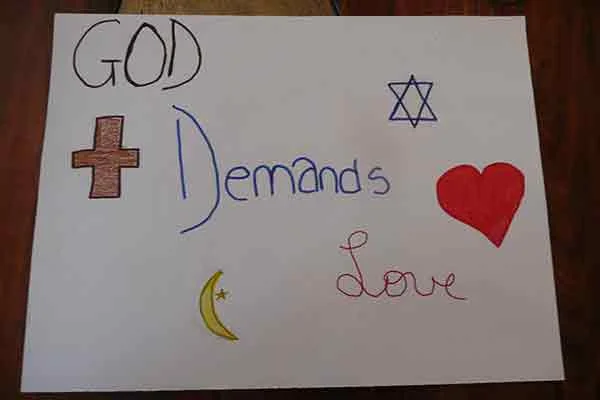 GOD
Demands
Love